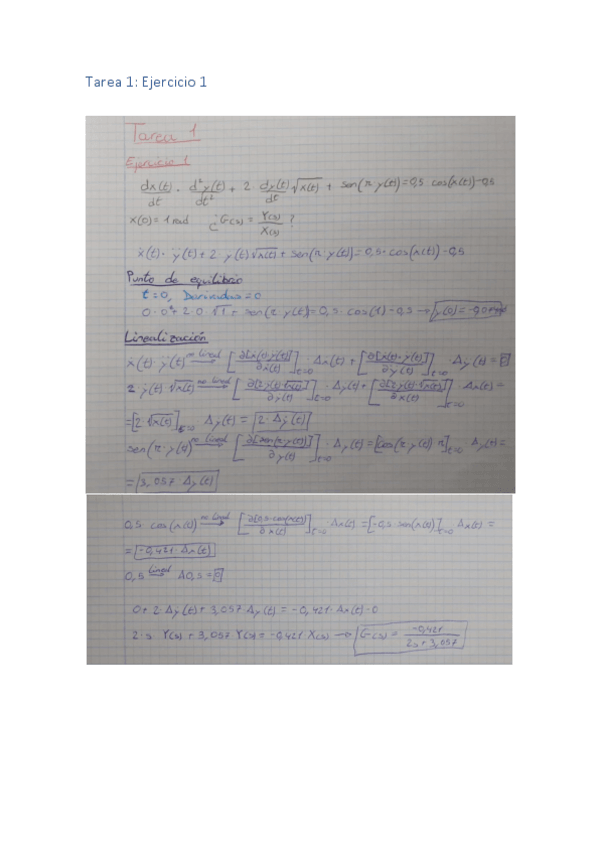 Tarea 1: Ejercicio 1
Tarea 1
Ejercicio 1
dx(t)/dt · d²y(t)/dt² + 2· dy(t)/dt √x(t) + sen(π·y(t)) = 0,5 cos(x(t)) - 0,5
x(0) = 1 rad ¿G(s) = Y(s)/X(s)?
ẋ(t)· ÿ(t) + 2·ẏ(t)√x(t) + sen(π·y(t)) = 0,5·cos(x(t)) - 0,5
Punto de equilibrio
t=0, Derivadas=0
0·0² + 2·0·√1 + sen(π·y(t)) = 0,5·cos(1) - 0,5 →
Linealización
ẋ(t)·ÿ(t) no lineal → [∂[ẋ(t)·ÿ(t)]/∂ẋ(t)]t=0 · Δẋ(t) + [∂[ẋ(t)·ÿ(t)]/∂ÿ(t)]t=0 · Δÿ(t) = 0
2·ẏ(t)·√x(t) no lineal → [∂[2ẏ(t)·√x(t)]/∂ẏ(t)]t=0 · Δẏ(t) + [∂[2ẏ(t)·√x(t)]/∂x(t)]t=0 · Δx(t) =
= [2·√x(t)]t=0 · Δẏ(t) = 2·Δẏ(t)
sen(π·y(t)) no lineal → [∂[sen(π·y(t))]/∂y(t)]t=0 · Δy(t) = [cos(π·y(t))·π]t=0 · Δy(t) =
= 3,057·Δy(t)
0,5·cos(x(t)) no lineal → [∂[0,5·cos(x(t))]/∂x(t)]t=0 · Δx(t) = [-0,5·sen(x(t))]t=0 · Δx(t) =
= -0,421·Δx(t)
0,5 lineal → Δ0,5 = 0
0 + 2·Δẏ(t) + 3,057·Δy(t) = -0,421·Δx(t) - 0
2·s Y(s) + 3,057 Y(s) = -0,421·X(s) → G(s) = -0,421/2s + 3,057